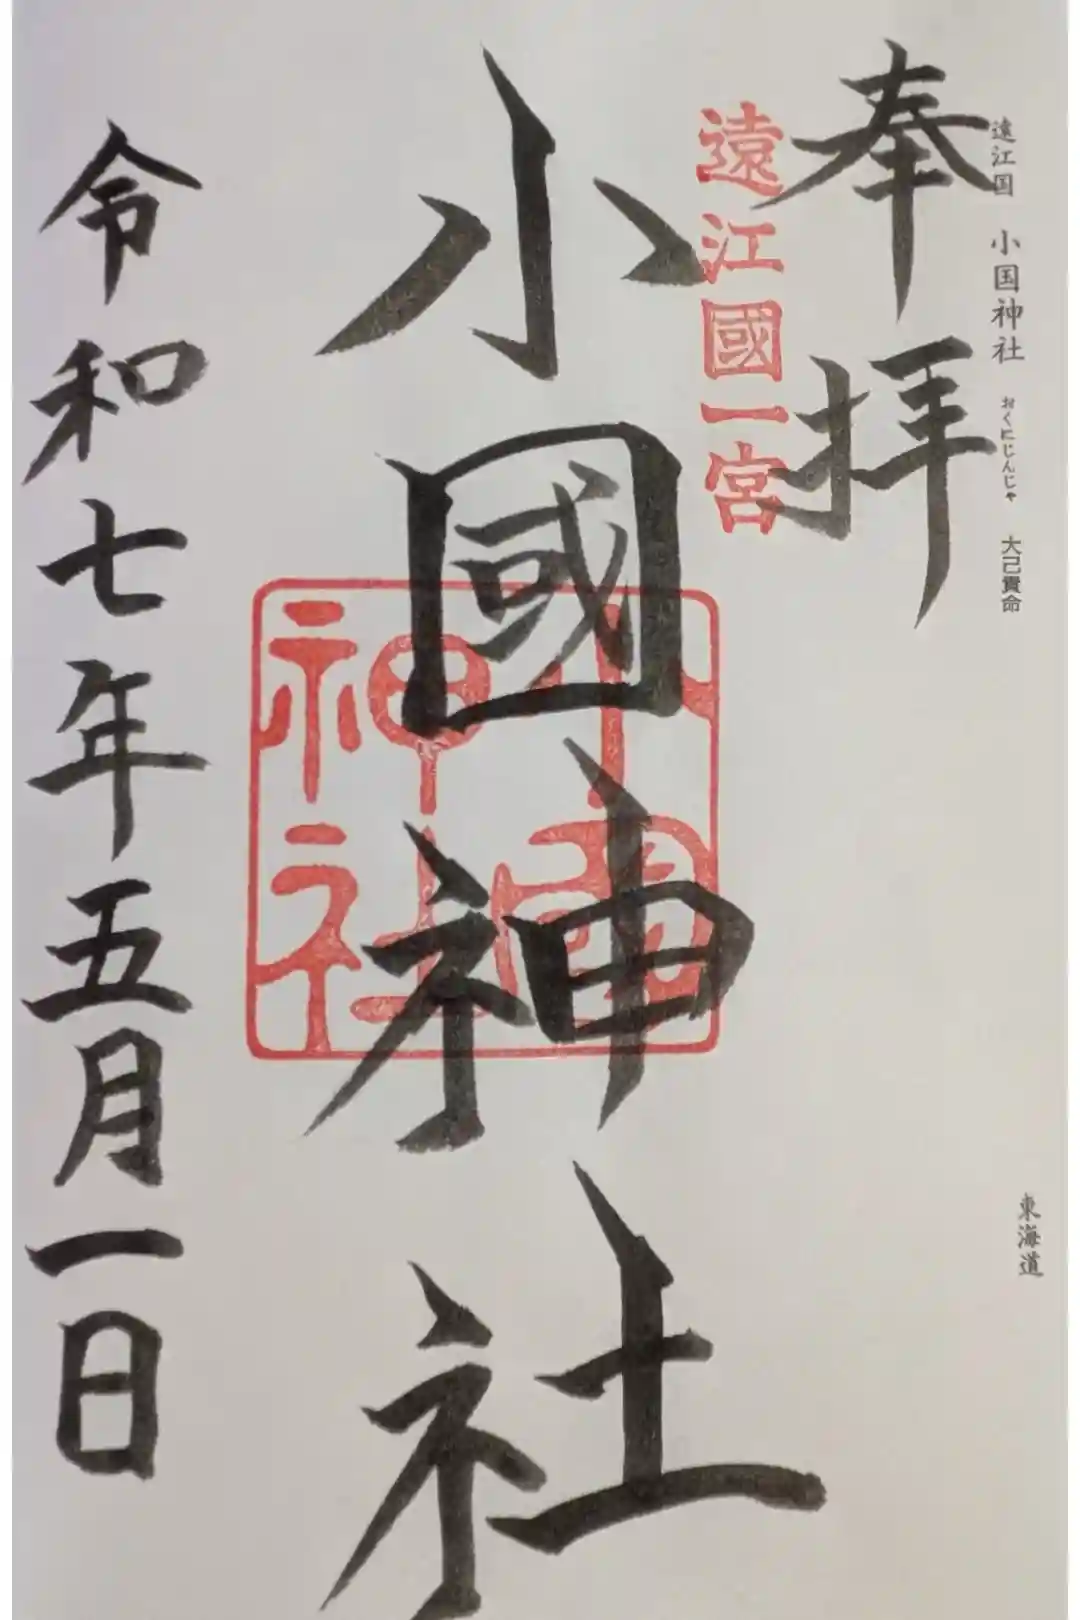 遠江国 小国神社 おくにじんじゃ 大己貴命
東海道
奉拝
遠江國一宮
小國神社
小國神社
令和七年五月一日